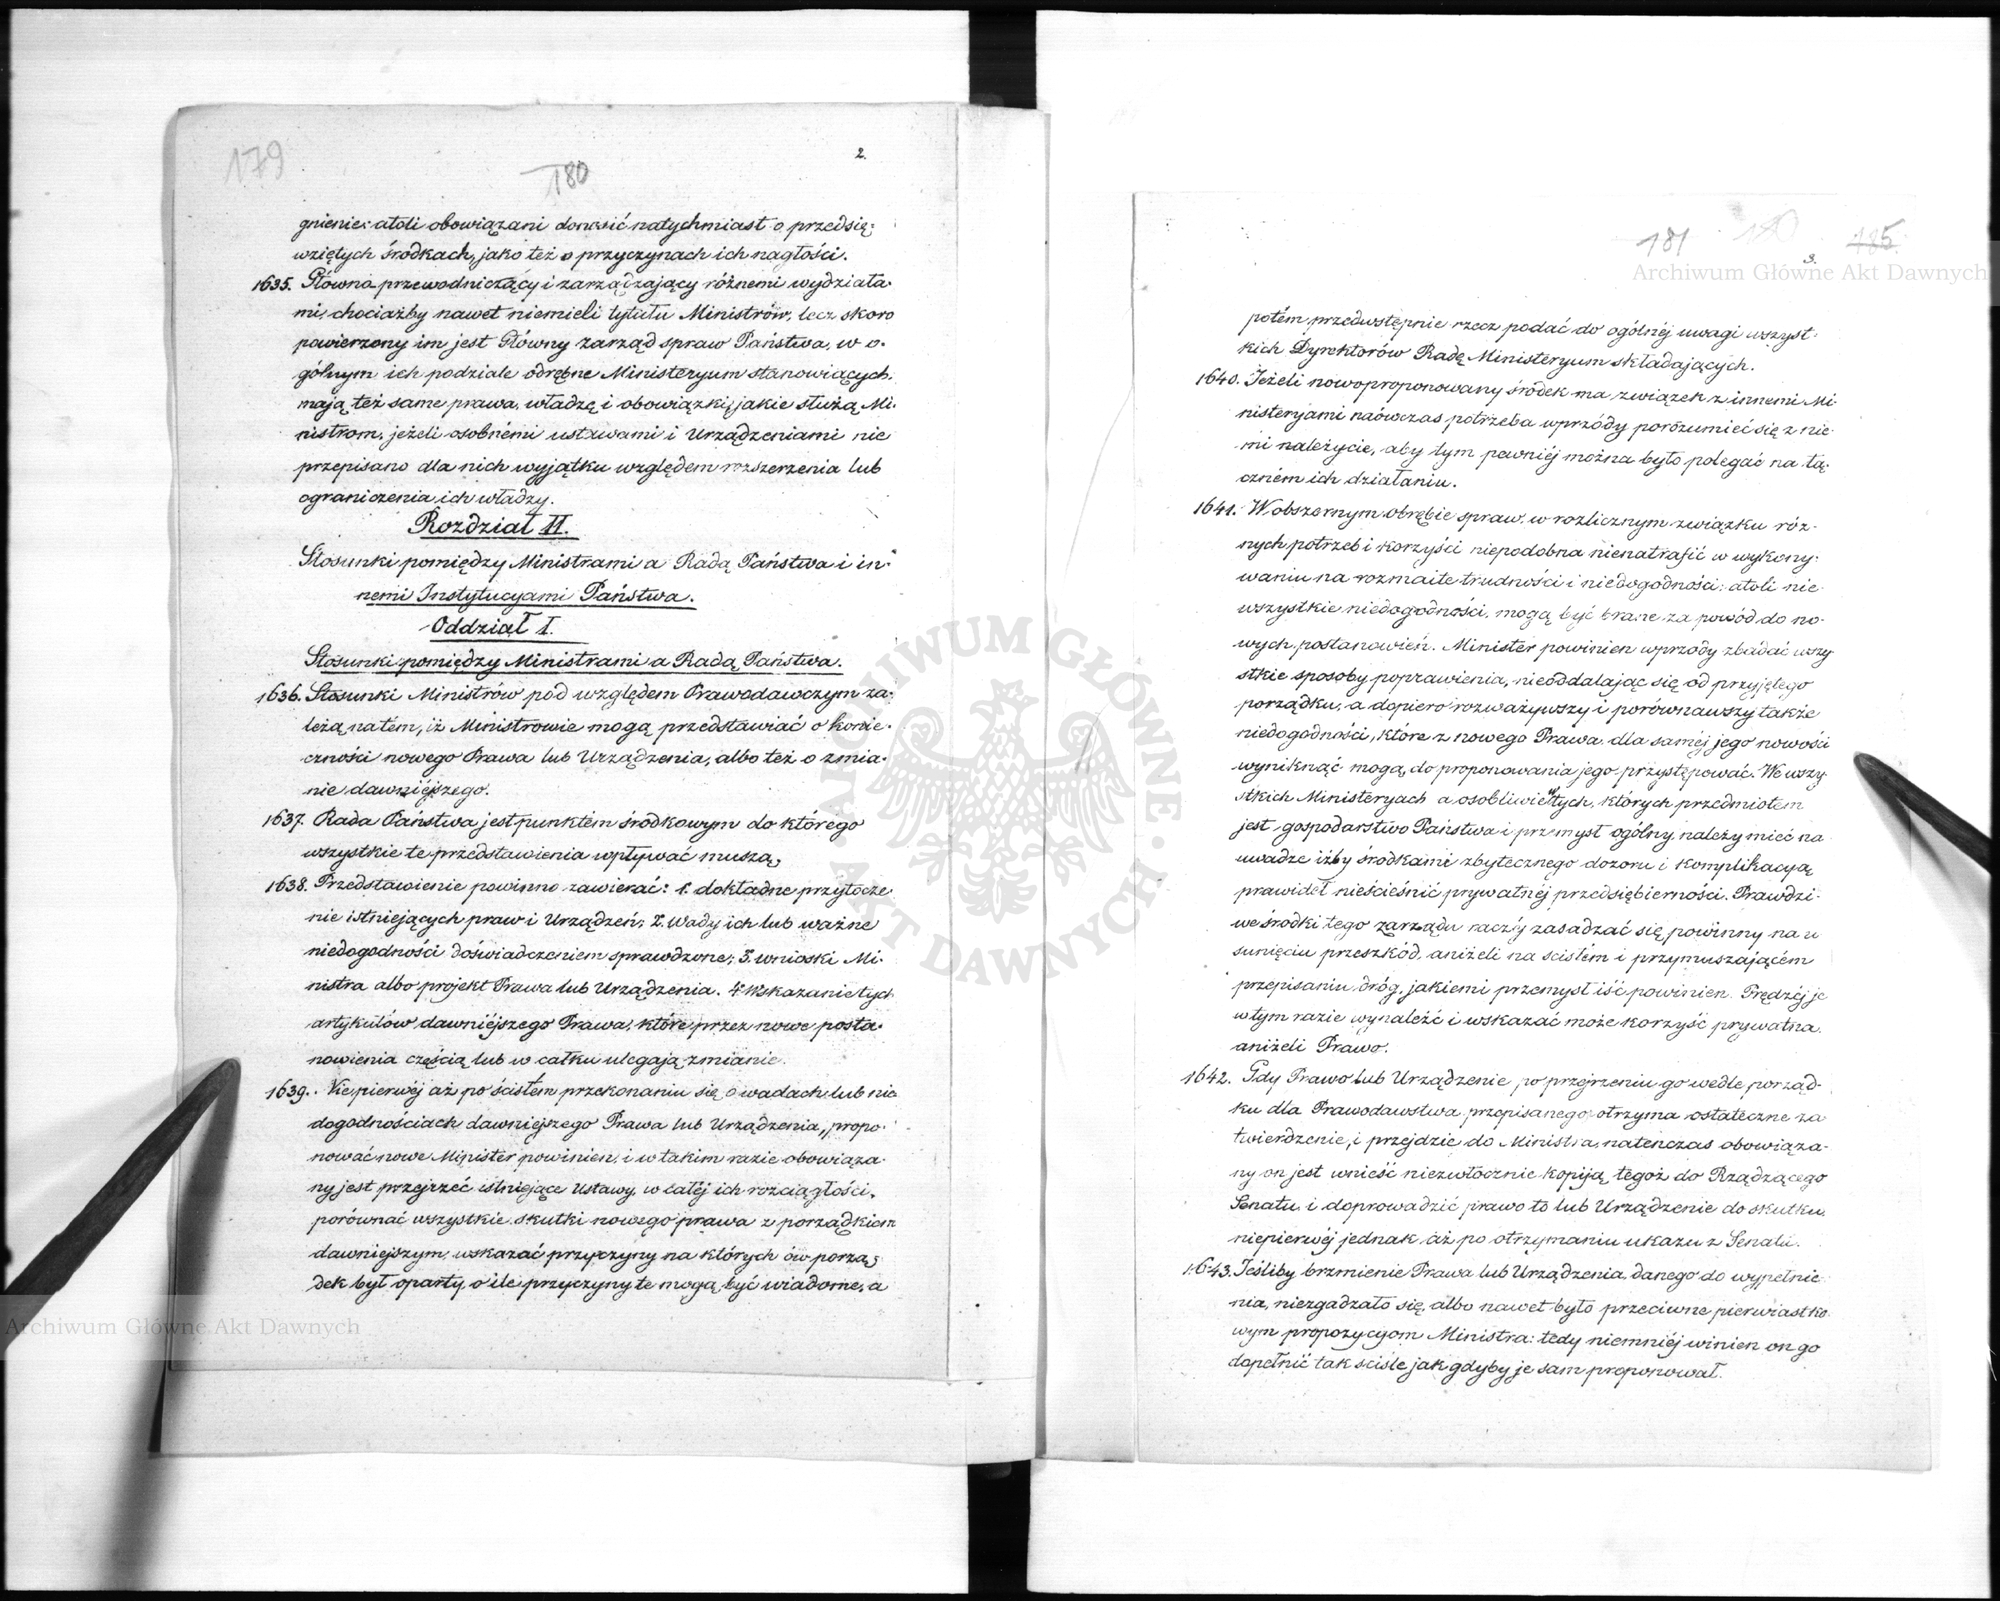 179
180
2.
gnienie: atoli obowiązani donosić natychmiast o przedsię:
wziętych środkach, jako też o przyczynach ich nagłości.
1635. Główno przewodniczący i zarządzający różnemi wydziała-
mi, chociażby nawet niemieli tytułu Ministrów, lecz skoro
powierzony im jest Główny zarząd spraw Państwa, w o-
gólnym ich podziale odrębne Ministeryum stanowiących,
mają też same prawa, władzę i obowiązki, jakie służą Mi-
nistrom, jeżeli osobnémi ustawami i Urządzeniami nie
przepisano dla nich wyjątku względem rozszerzenia lub
ograniczenia ich władzy.
Rozdział II.
Stosunki pomiędzy Ministrami a Radą Państwa i in-
nemi Instytucyami Państwa.
Oddział I.
Stosunki pomiędzy Ministrami a Radą Państwa.
1636. Stosunki Ministrów pod względem Prawodawczym za-
leżą na tém, iż Ministrowie mogą przedstawiać o konie-
czności nowego Prawa lub Urządzenia, albo też o zmia-
nie dawniéjszego.
1637. Rada Państwa jest punktem środkowym do którego
wszystkie te przedstawienia wpływać muszą,
1638. Przedstawienie powinno zawierać: 1. dokładne przytocze
nie istniejących praw i Urządzeń; 2. Wady ich lub ważne
niedogodności doświadczeniem sprawdzone; 3. wnioski Mi-
nistra albo projekt Prawa lub Urządzenia. 4. Wskazanie tych
artykułów dawniéjszego Prawa, które przez nowe posta-
nowienia częścią lub w całku ulegają zmianie.
1639. Nie pierwéj aż po ścisłém przekonaniu się o wadach lub nie
dogodnościach dawniejszego Prawa lub Urządzenia, propo-
nować nowe Minister powinien, i w takim razie obowiąza-
ny jest przejrzeć istniejące Ustawy w całéj ich rozciągłości,
porównać wszystkie skutki nowego prawa z porządkiem
dawniejszym, wskazać przyczyny na których ów porzą,
dek był oparty, o ile przyczyny te mogą być wiadome, a
181
180
185
3.
Archiwum Główne Akt Dawnych
potém przedwstępnie rzecz podać do ogólnéj uwagi wszyst-
kich Dyrektorów Radę Ministeryum składających.
1640. Jeżeli nowoproponowany środek ma związek z innemi Mi-
nisteryami naówczas potrzeba wprzódy porozumieć się z nie-
mi należycie, aby tym pewniéj można było polegać na łą-
czném ich działaniu.
1641. W obszernym obrębie spraw, w rozlicznym związku róż-
nych potrzeb i korzyści niepodobna nienatrafić w wykony-
waniu na rozmaite trudności i niedogodności; atoli nie
wszystkie niedogodności, mogą być brane za powód do no-
wych postanowień. Minister powinien wprzódy zbadać wszy
stkie sposoby poprawienia, nieoddalając się od przyjętego
porządku, a dopiero rozważywszy i porównawszy także
niedogodności, które z nowego Prawa, dla saméj jego nowości
wyniknąć mogą, do proponowania jego przystępować. We wszy
stkich Ministeryach a osobliwie w tych, których przedmiotem
jest gospodarstwo Państwa i przemysł ogólny, należy mieć na
uwadze iżby środkami zbytecznego dozoru i komplikacyą
prawideł nieścieśnić prywatnéj przedsiębierności. Prawdzi-
we środki tego zarządu raczéj zasadzać się powinny na u
sunięciu przeszkód, aniżeli na scisłém i przymuszającém
przepisaniu dróg, jakiemi przemysł iść powinien. Prędzéj je
w tym razie wynaleźć i wskazać może korzyść prywatna
aniżeli Prawo.
1642. Gdy Prawo lub Urządzenie po przejrzeniu go wedle porząd-
ku dla Prawodawstwa przepisanego, otrzyma ostateczne za
twierdzenie, i przejdzie do Ministra, natenczas obowiąza-
ny on jest wnieść niezwłocznie kopiją tegoż do Rządzącego
Senatu i doprowadzić prawo to lub Urządzenie do skutku,
niepierwéj jednak aż po otrzymaniu ukazu z Senatu.
1643. Jeśliby brzmienie Prawa lub Urządzenia, danego do wypełnie
nia, niezgadzało się, albo nawet było przeciwne pierwiastko
wym propozycyom Ministra: tedy niemniéj winien on go
dopełnić tak ściśle jak gdyby je sam proponował.
ARCHIWUM GŁÓWNE AKT DAWNYCH
Archiwum Główne Akt Dawnych